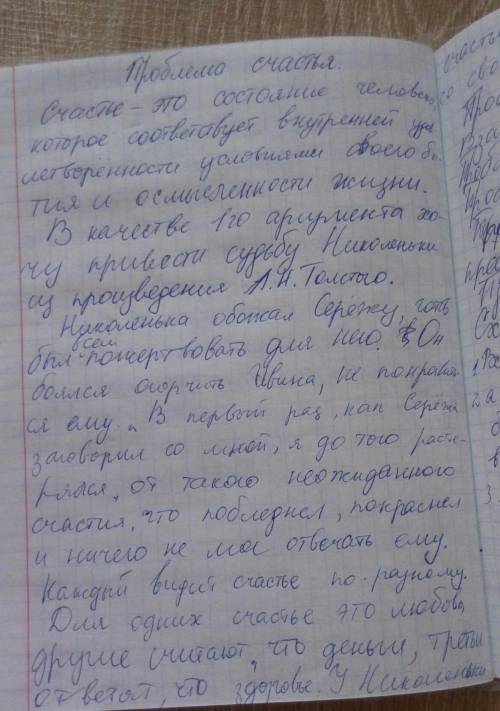 Проблема счастья.
Счастье - это состояние человека,
которое соответствует внутренней удов
летворённости условиями своего бы
тия и осмысленности жизни.
В качестве 1го аргумента хо-
чу привести судьбу Николеньки
из произведения Л.Н.Толстого.
Николенька обожал Серёжу, готов
был всем пожертвовать для него. Он
боялся огорчить Ивина, не понравит
ся ему. "В первый раз, как Серёжа
заговорил со мной, я до того расте-
рялся, от такого неожиданного
счастия, что побледнел, покраснел
и ничего не мог отвечать ему.
Каждый видит счастье по-разному.
Для одних счастье это любовь,
другие считают, что деньги, третьи
ответят, что здоровье. У Николеньки
счастья